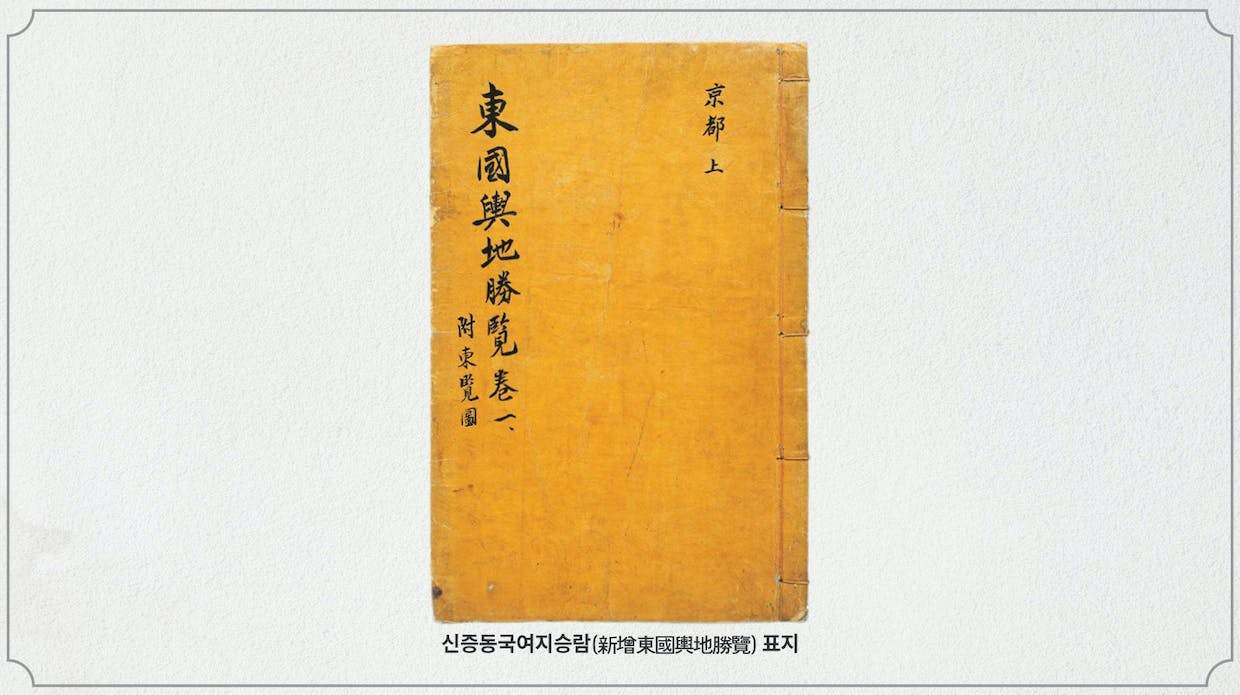 京都 上
東國輿地勝覽卷一、
附東覽圖
신증동국여지승람(新增東國輿地勝覽) 표지